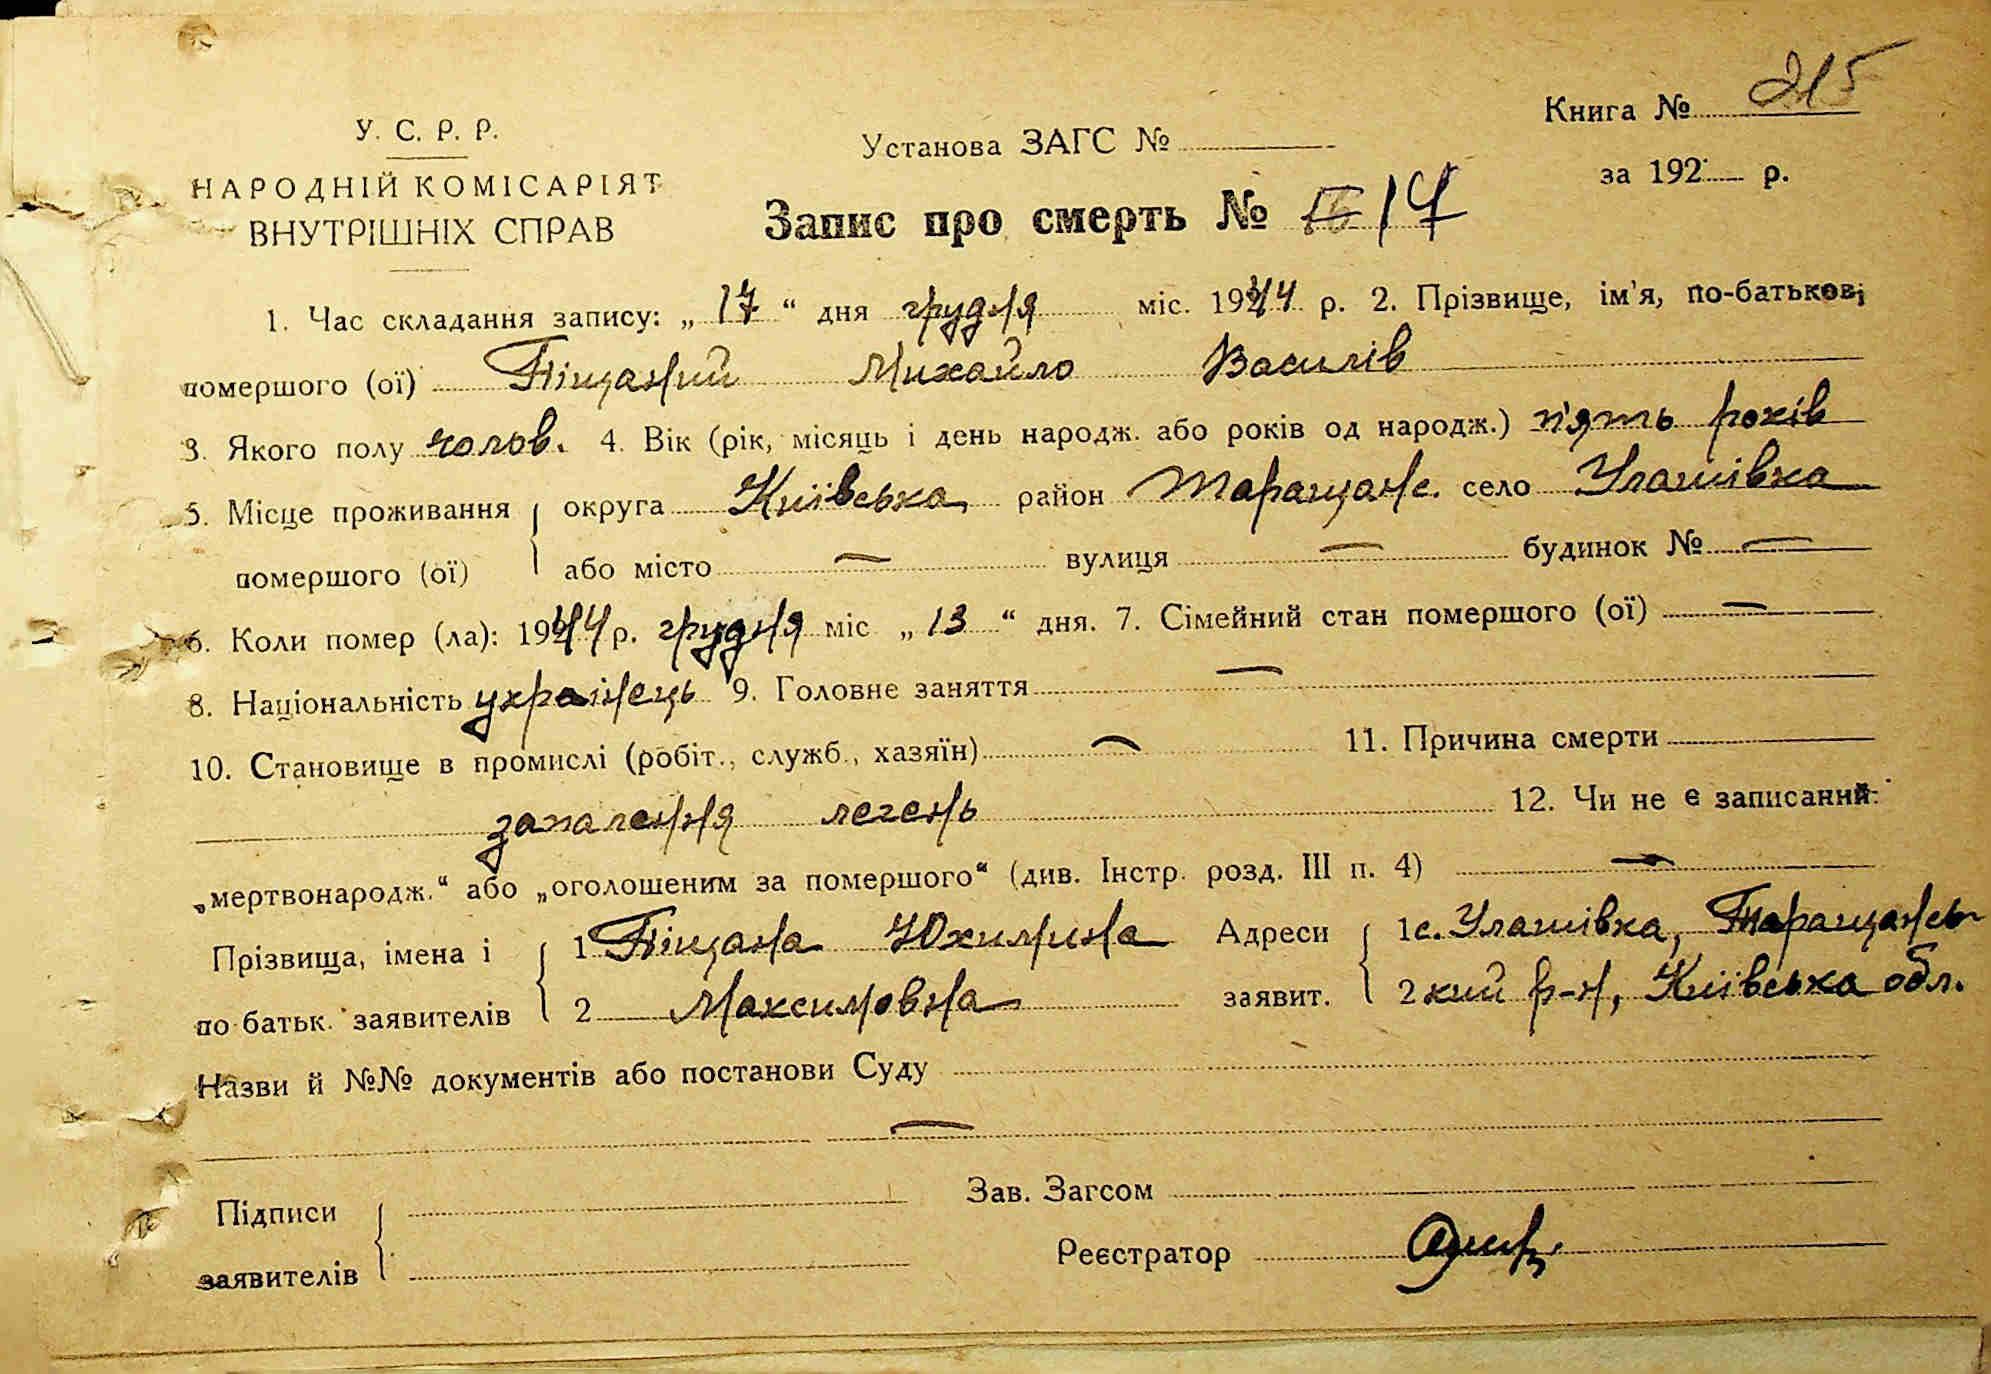 215
Книга №
У. С. Р. Р.
Установа ЗАГС №
за 192 р.
НАРОДНІЙ КОМІСАРІЯТ
ВНУТРІШНІХ СПРАВ
Запис про смерть № 14
1. Час складання запису: „ 17 “ дня грудня міс. 1944 р. 2. Прізвище, ім'я, по-батькові
помершого (ої) Піщаний Михайло Василів
3. Якого полу чолов. 4. Вік (рік, місяць і день народж. або років од народж.) п'ять років
5. Місце проживання округа Київська район Таращанс. село Улашівка
помершого (ої) або місто — вулиця — будинок № —
6. Коли помер (ла): 1944 р. грудня міс „ 13 “ дня. 7. Сімейний стан помершого (ої) —
8. Національність українець 9. Головне заняття —
10. Становище в промислі (робіт., служб., хазяїн) — 11. Причина смерти
запалення легень 12. Чи не є записаний:
„мертвонародж.“ або „оголошеним за помершого“ (див. Інстр. розд. III п. 4) —
Прізвища, імена і 1 Піщана Юхимина Адреси 1 с. Улашівка, Таращансь-
по батьк. заявителів 2 Максимовна заявит. 2 кий р-н, Київська обл.
Назви й №№ документів або постанови Суду
—
Підписи Зав. Загсом
заявителів Реєстратор